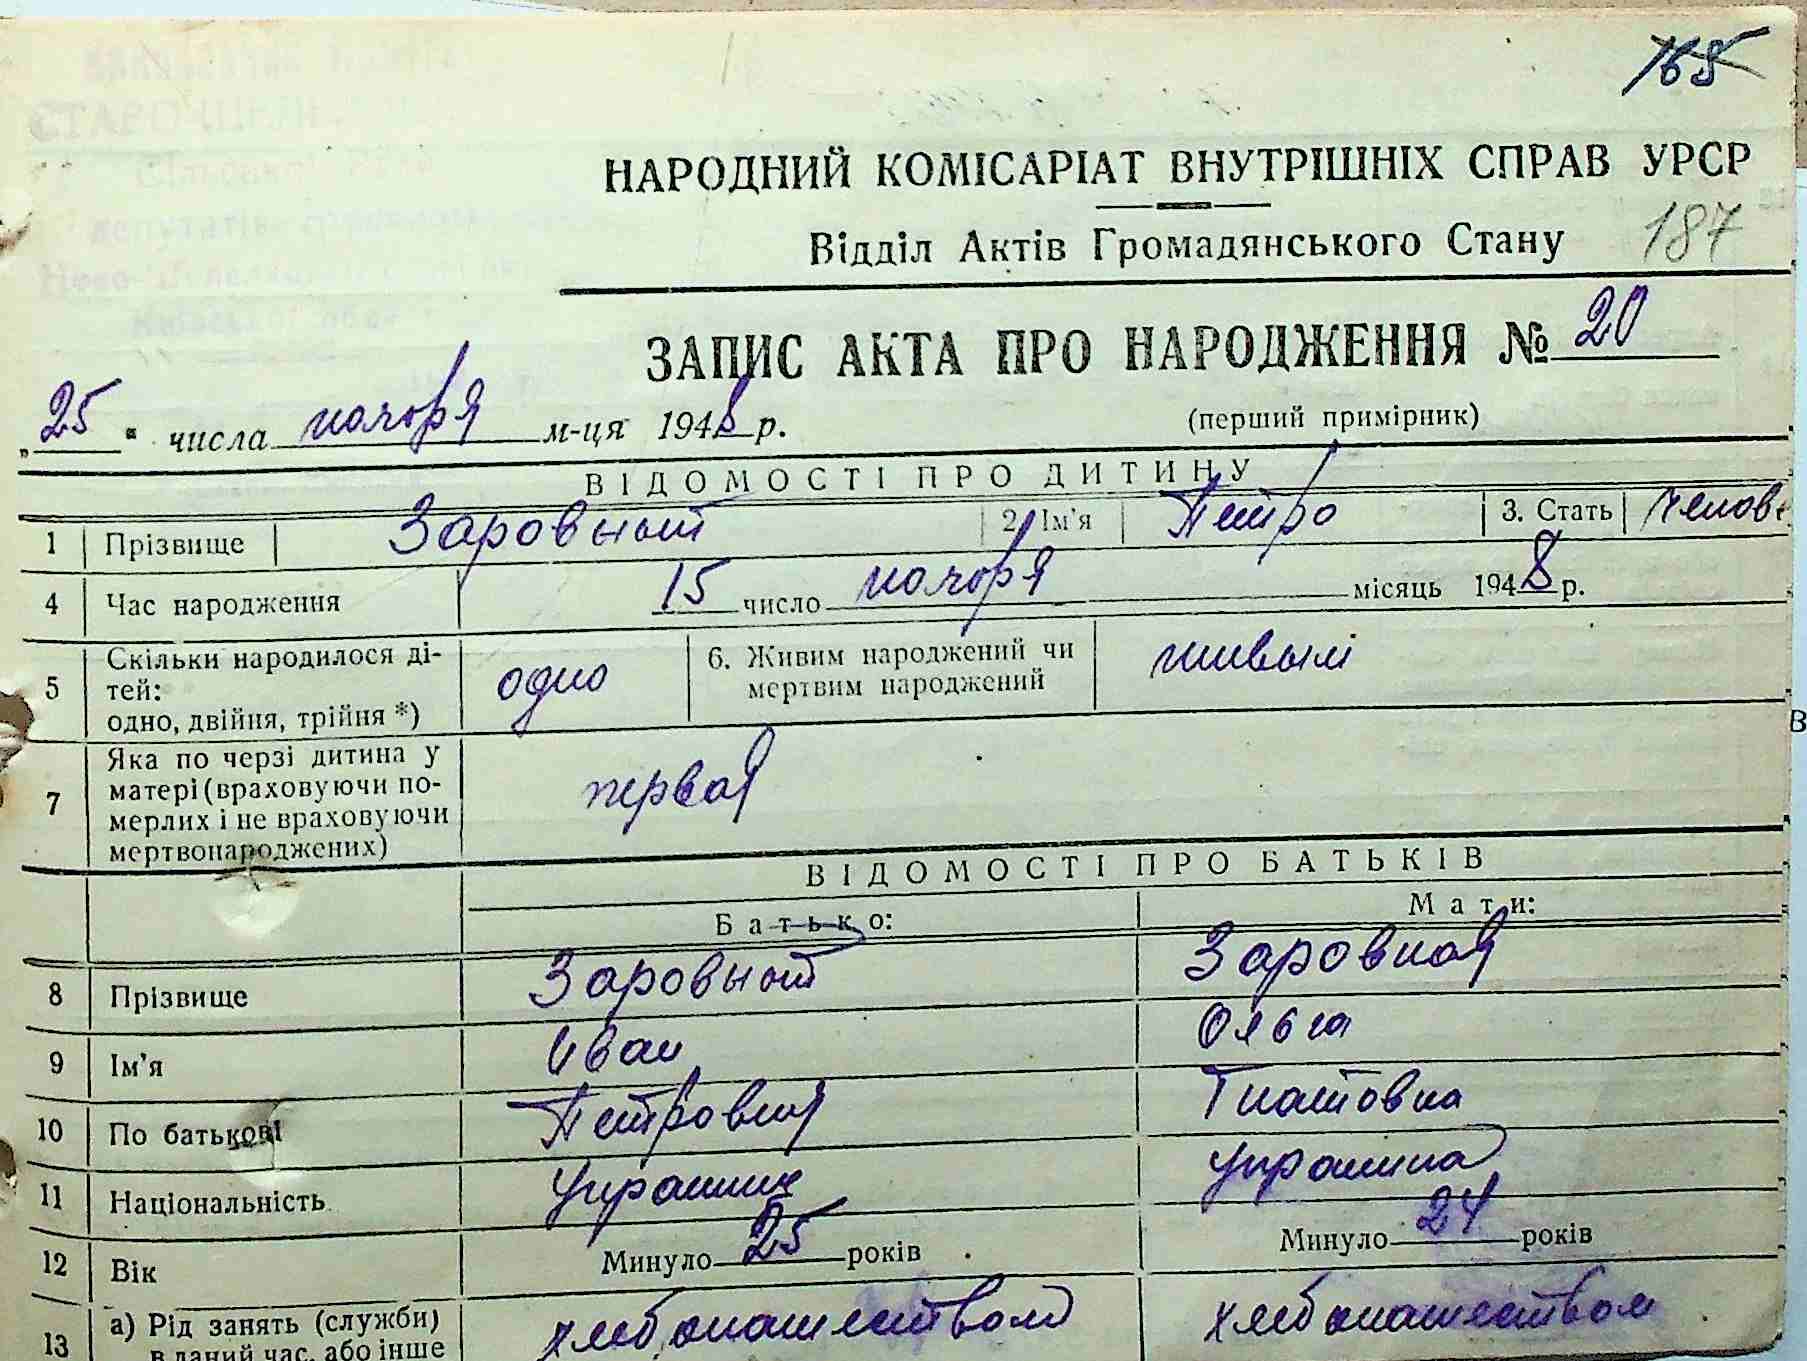 165
НАРОДНИЙ КОМІСАРІАТ ВНУТРІШНІХ СПРАВ УРСР
Відділ Актів Громадянського Стану 187
ЗАПИС АКТА ПРО НАРОДЖЕННЯ № 20
„25“ числа ноября м-ця 1948 р. (перший примірник)
ВІДОМОСТІ ПРО ДИТИНУ
1 Прізвище Заровный 2. Ім’я Петро 3. Стать челов
4 Час народження 15 число ноября місяць 1948 р.
5 Скільки народилося ді-
тей:
одно, двійня, трійня *) одно 6. Живим народжений чи
мертвим народжений живым
7 Яка по черзі дитина у
матері (враховуючи по-
мерлих і не враховуючи
мертвонароджених) первая
ВІДОМОСТІ ПРО БАТЬКІВ
Батько: Мати:
8 Прізвище Заровный Заровная
9 Ім’я Иван Ольга
10 По батькові Петрович Гнатовна
11 Національність Украинец Украинка
12 Вік Минуло 25 років Минуло 24 років
13 а) Рід занять (служби)
в даний час, або інше хлебопашеством хлебопашеством